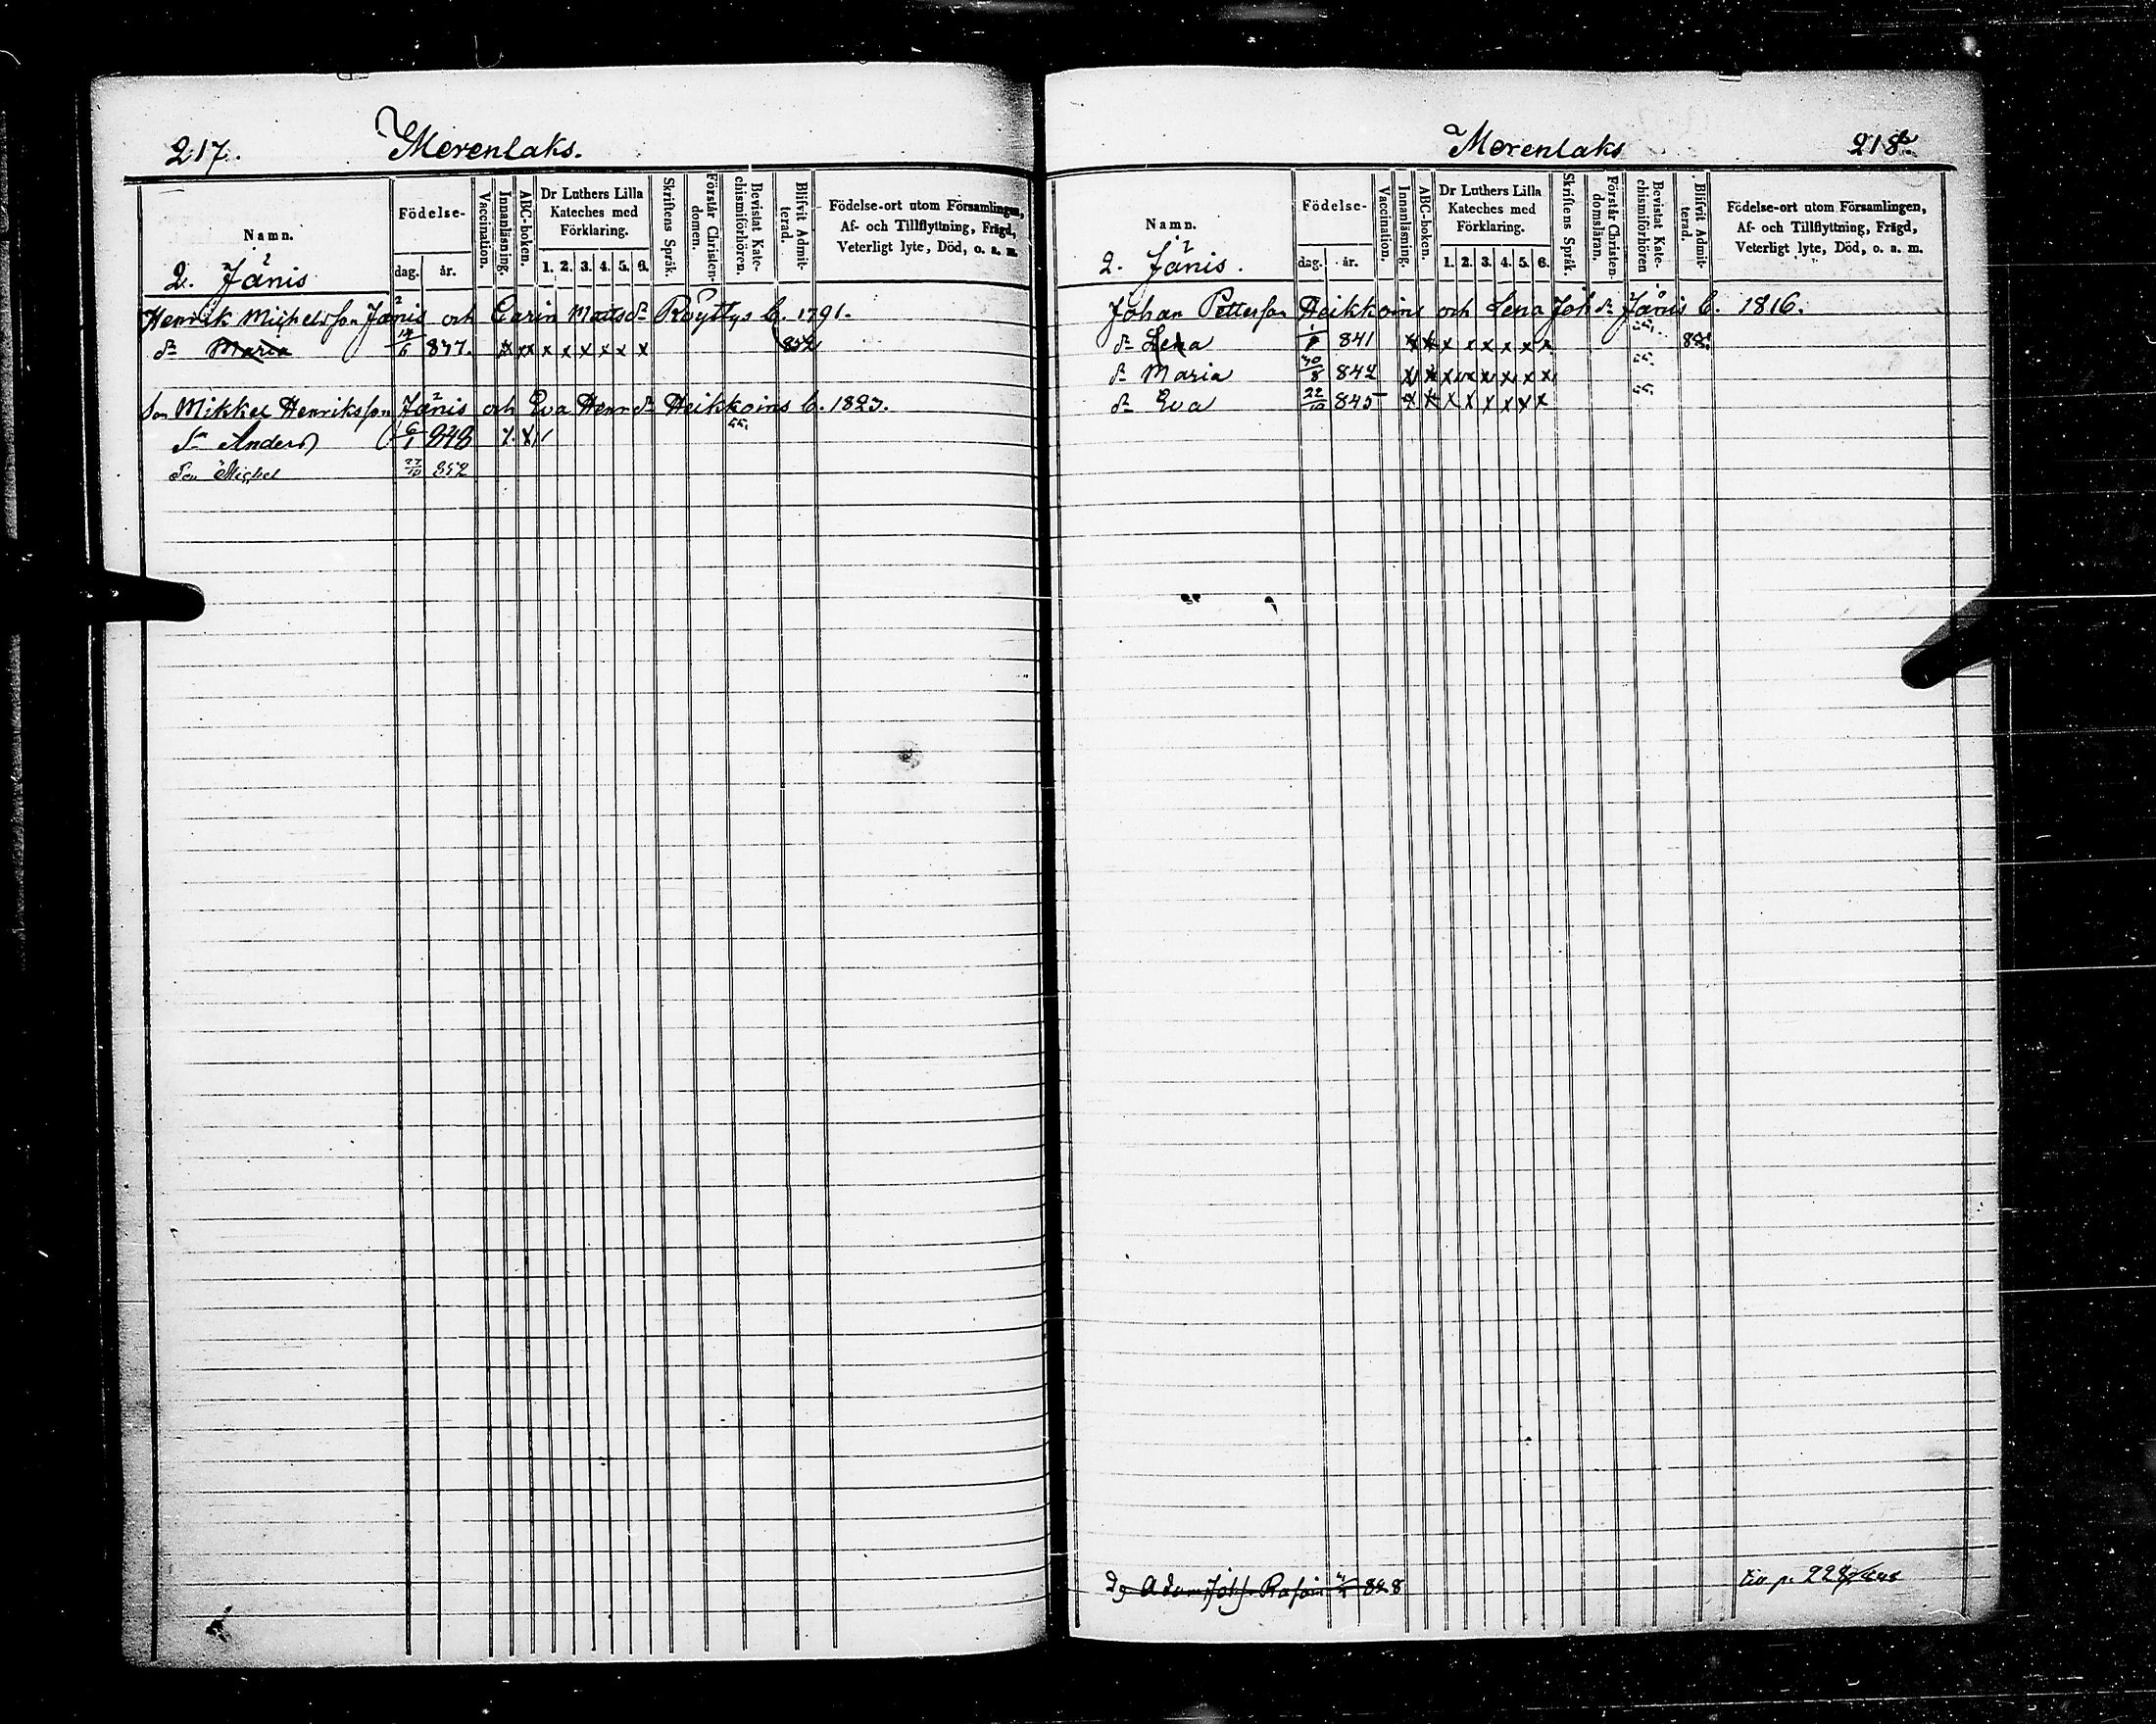 217. Merenlaks.
Namn.
2. Jänis
Födelse-
dag. år.
Vaccination.
Innanläsning.
ABC-boken.
Dr Luthers Lilla
Kateches med
Förklaring.
1. 2. 3. 4. 5. 6.
Skriftens Språk.
Förstår Christen-
domen.
Bevistat Kate-
chismiförhören.
Blifvit Admit-
terad.
Födelse-ort utom Församlingen,
Af- och Tillflyttning, Frägd,
Veterligt lyte, Död, o. a. m.
Henrik Michelsson Jänis och Carin Matsdr Röyttys C. 1791.
dr Maria 14/6 837. x xx x x x x x x 852
Son Mikkel Henriksson Jänis och Eva Henrdr Heikkoins C. 1823.
Sn Anders 6/1 848 x x /
Son Michel 27/10 852
Merenlaks 218.
Namn.
2. Jänis.
Födelse-
dag. år.
Vaccination.
Innanläsning.
ABC-boken.
Dr Luthers Lilla
Kateches med
Förklaring.
1. 2. 3. 4. 5. 6.
Skriftens Språk.
Förstår Christen-
domsläran.
Bevistat Kate-
chismiförhören
Blifvit Admit-
terad.
Födelse-ort utom Församlingen,
Af- och Tillflyttning, Frägd,
Veterligt lyte, Död, o. a. m.
Johan Petterson Heikkoins och Lena Johdr Jänis C. 1816.
dr Lena 841 x x x x x x x x 55.
dr Maria 30/8 842 x x x x x x x x 55.
dr Eva 22/10 845 x x x x x x x x 55.
Dg Adam Rasain 828 p. 228